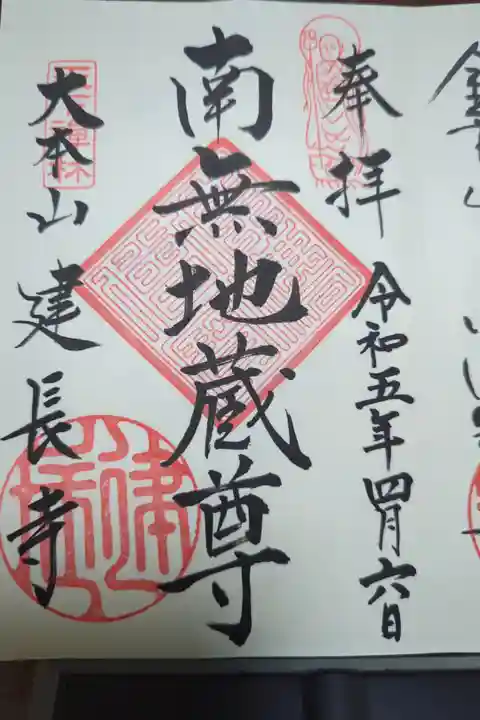 奉拝
令和五年四月六日
南無地蔵尊
大本山
建長寺